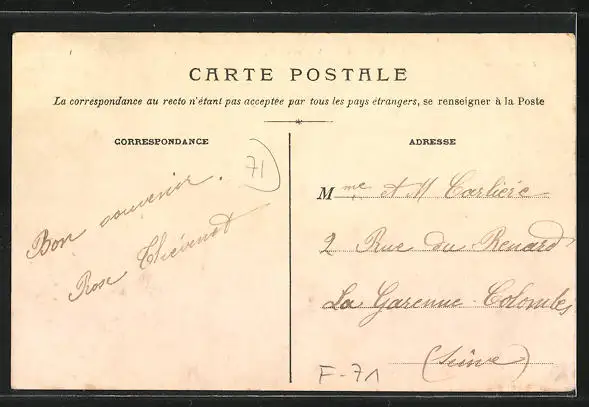 CARTE POSTALE
La correspondance au recto n'étant pas acceptée par tous les pays étrangers, se renseigner à la Poste
CORRESPONDANCE
71
Bon souvenir.
Rose Thévenot
ADRESSE
Mme et M Carlière
2 Rue du Renard
La Garenne-Colombes
(Seine)
F-71